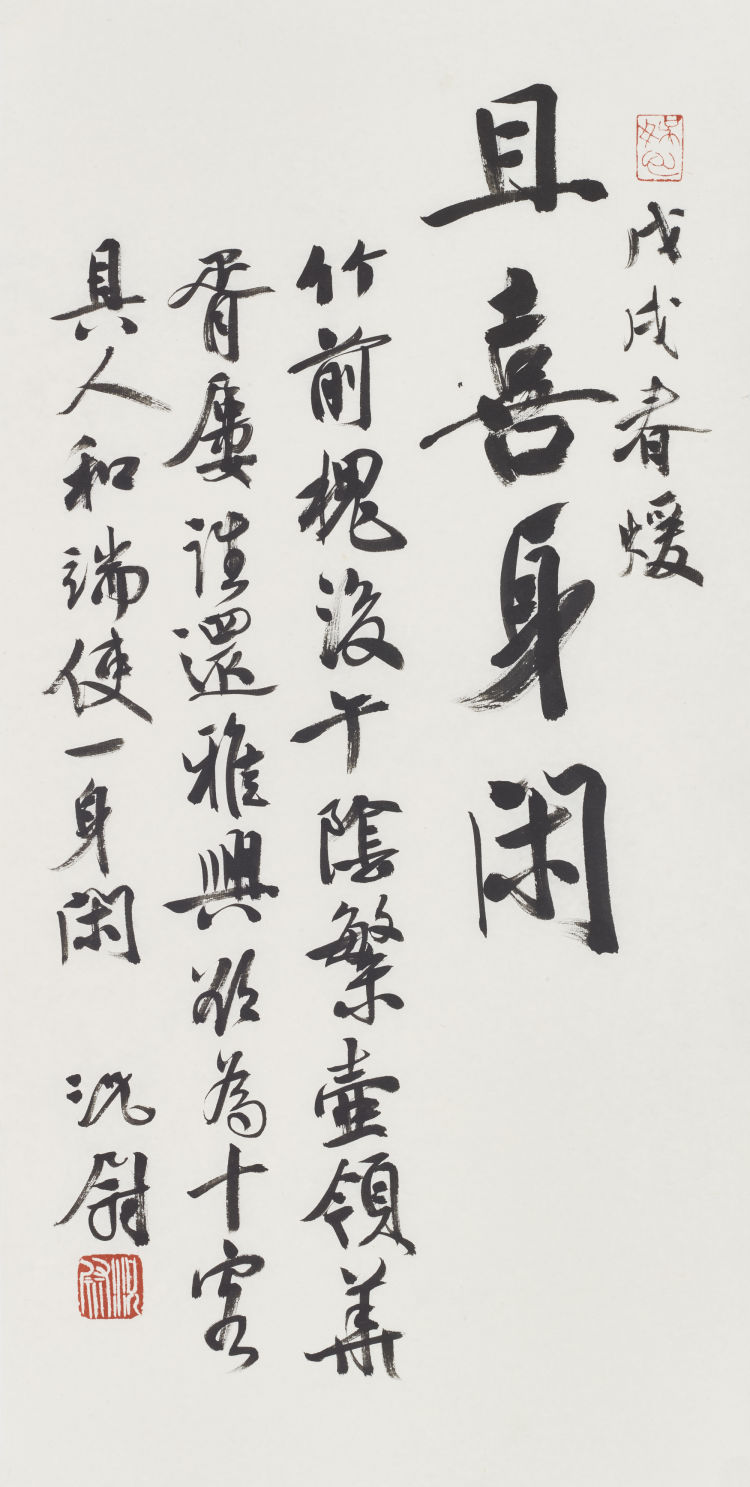 戊戌春煖
且喜身閑
竹前槐後午陰繁壺領華
胥屢往還雅興欲為十客
具人和端使一身閑 沈尉